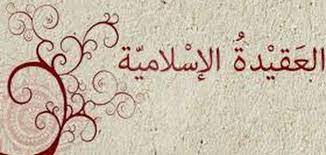 العَقِيْدةُ الإسْلاميّة